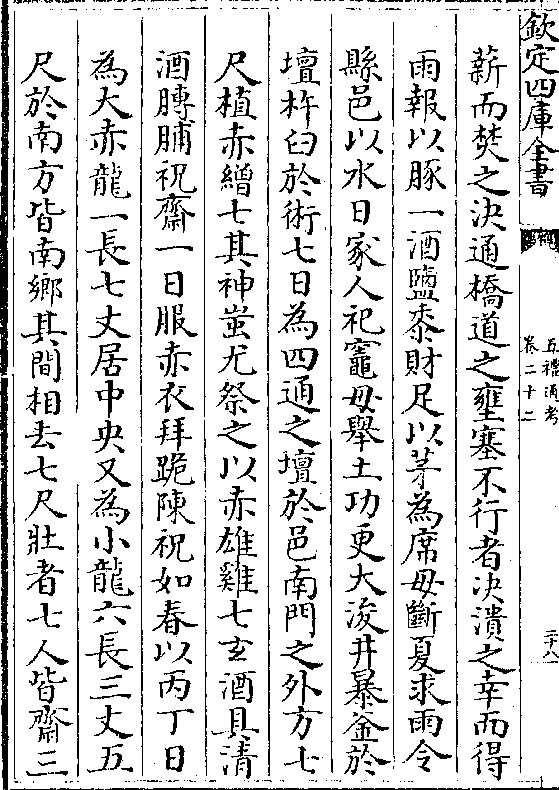 欽定四庫全書
五禮通考
卷二十二
二十八
薪而焚之決通橋道之壅塞不行者決瀆之幸而得
雨報以豚一酒鹽黍財足以茅為席毋斷夏求雨令
縣邑以水日家人祀竈毋舉土功更大浚井暴釜於
壇杵臼於術七日為四通之壇於邑南門之外方七
尺植赤繒七其神蚩尤祭之以赤雄雞七玄酒具清
酒膊脯祝齋一日服赤衣拜跪陳祝如春以丙丁日
為大赤龍一長七丈居中央又為小龍六長三丈五
尺於南方皆南鄉其間相去七尺壯者七人皆齋三